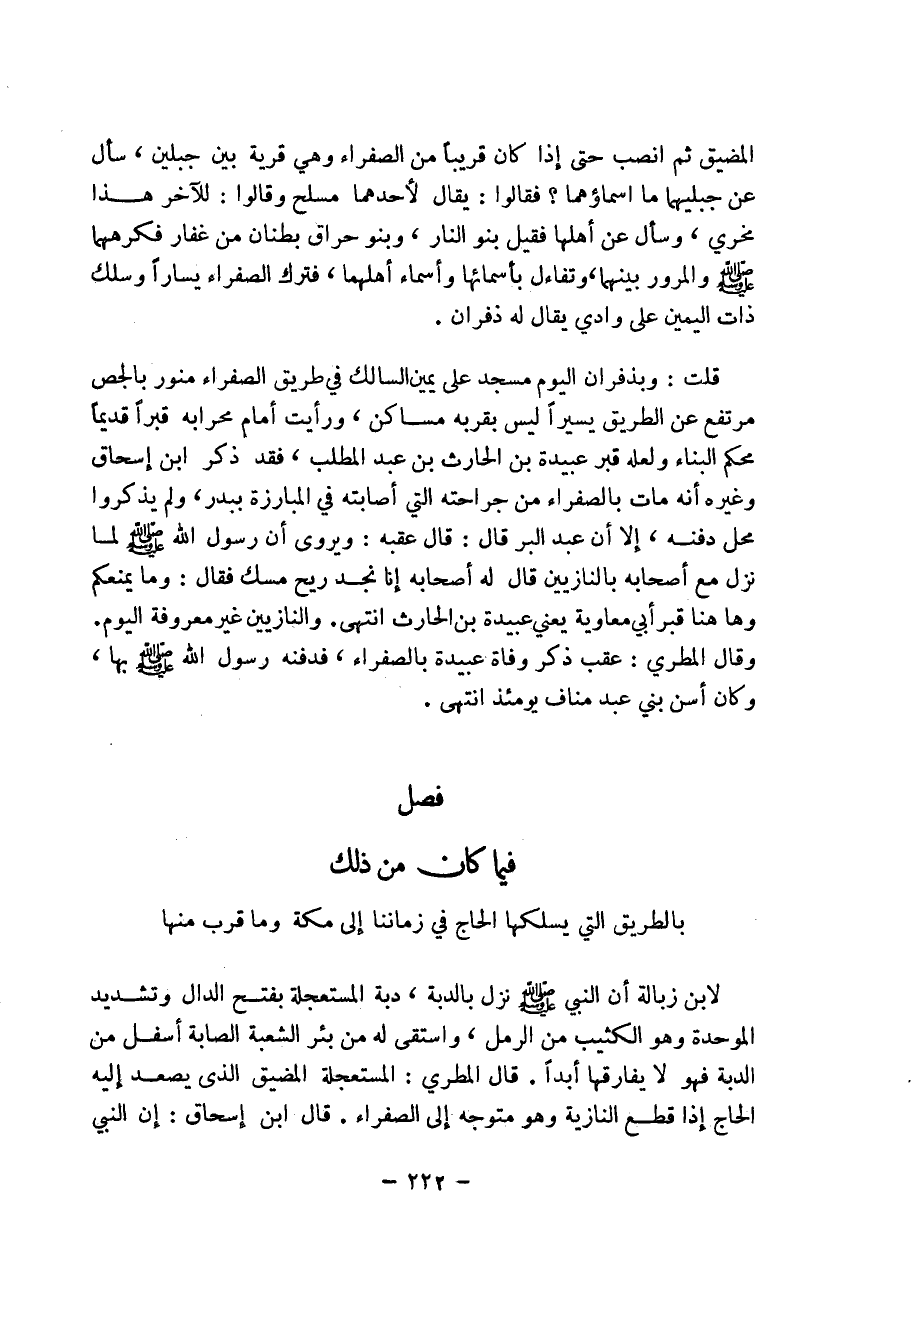 المضيق ثم انصب حتى إذا كان قريباً من الصفراء وهي قرية بين جبلين ، سأل
عن جبليها ما اسماؤهما ؟ فقالوا : يقال لأحدهما مسلح وقالوا : للآخر هـذا
مخري ، وسأل عن أهلها فقيل بنو النار ، وبنو حراق بطنان من غفار فكرهها
ﷺ والمرور بينها،وتفاءل بأسمائها وأسماء أهلهما ، فترك الصفراء يساراً وسلك
ذات اليمين على وادي يقال له ذفران .
قلت : وبذفران اليوم مسجد على يمين السالك في طريق الصفراء منور بالجص
مرتفع عن الطريق يسيراً ليس بقربه مساكن ، ورأيت أمام محرابه قبراً قديماً
محكم البناء ولعله قبر عبيدة بن الحارث بن عبد المطلب ، فقد ذكر ابن إسحاق
وغيره أنه مات بالصفراء من جراحته التي أصابته في المبارزة ببدر، ولم يذكروا
محل دفنه ، إلا أن عبد البر قال : قال عقبه : ويروى أن رسول الله ﷺ لما
نزل مع أصحابه بالنازيين قال له أصحابه إنا نجد ريح مسك فقال : وما يمنعكم
وها هنا قبر أبي معاوية يعني عبيدة بن الحارث انتهى. والنازيين غير معروفة اليوم.
وقال المطري : عقب ذكر وفاة عبيدة بالصفراء ، فدفنه رسول الله ﷺ بها ،
وكان أسن بني عبد مناف يومئذ انتهى .
فصل
فيما كان من ذلك
بالطريق التي يسلكها الحاج في زماننا إلى مكة وما قرب منها
لابن زبالة أن النبي ﷺ نزل بالدبة ، دبة المستعجلة بفتح الدال وتشديد
الموحدة وهو الكثيب من الرمل ، واستقى له من بئر الشعبة الصابة أسفل من
الدبة فهو لا يفارقها أبداً . قال المطري : المستعجلة المضيق الذى يصعد إليه
الحاج إذا قطع النازية وهو متوجه إلى الصفراء . قال ابن إسحاق : إن النبي
– ٢٢٢ –